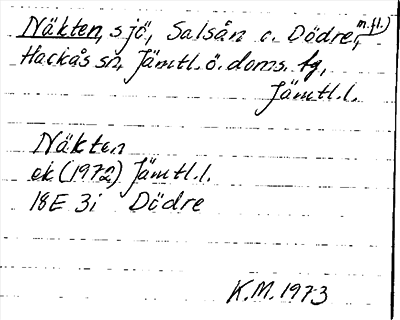 Näkten, sjö, Salsån o. Dödre, m.fl.)
Hackås sn, Jämtl. ö. doms. fg,
Jämtl.l.
Näkten
ek (1972) Jämtl.l.
18E 3i Dödre
K.M. 1973